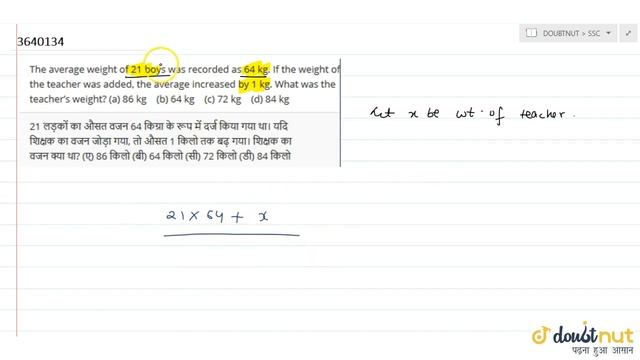 DOUBTNUT > SSC
3640134
The average weight of 21 boys was recorded as 64 kg. If the weight of
the teacher was added, the average increased by 1 kg. What was the
teacher's weight? (a) 86 kg (b) 64 kg (c) 72 kg (d) 84 kg
21 लड़कों का औसत वजन 64 किग्रा के रूप में दर्ज किया गया था। यदि
शिक्षक का वजन जोड़ा गया, तो औसत 1 किलो तक बढ़ गया। शिक्षक का
वजन क्या था? (ए) 86 किलो (बी) 64 किलो (सी) 72 किलो (डी) 84 किलो
Let x be wt. of teacher.
21 × 64 + x
doubtnut
पढ़ना हुआ आसान